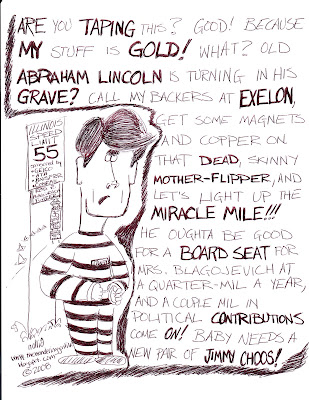 ARE YOU TAPING THIS? GOOD! BECAUSE
MY STUFF IS GOLD! WHAT? OLD
ABRAHAM LINCOLN IS TURNING IN HIS
GRAVE? CALL MY BACKERS AT EXELON,
GET SOME MAGNETS
AND COPPER ON
THAT DEAD, SKINNY
MOTHER-FLIPPER, AND
LET'S LIGHT UP THE
MIRACLE MILE!!!
HE OUGHTA BE GOOD
FOR A BOARD SEAT FOR
MRS. BLAGOJEVICH AT
A QUARTER-MIL A YEAR,
AND A COUPLE MIL IN
POLITICAL CONTRIBUTIONS
COME ON! BABY NEEDS A
NEW PAIR OF JIMMY CHOOS!
ILLINOIS
SPEED
LIMIT
55
© 2008